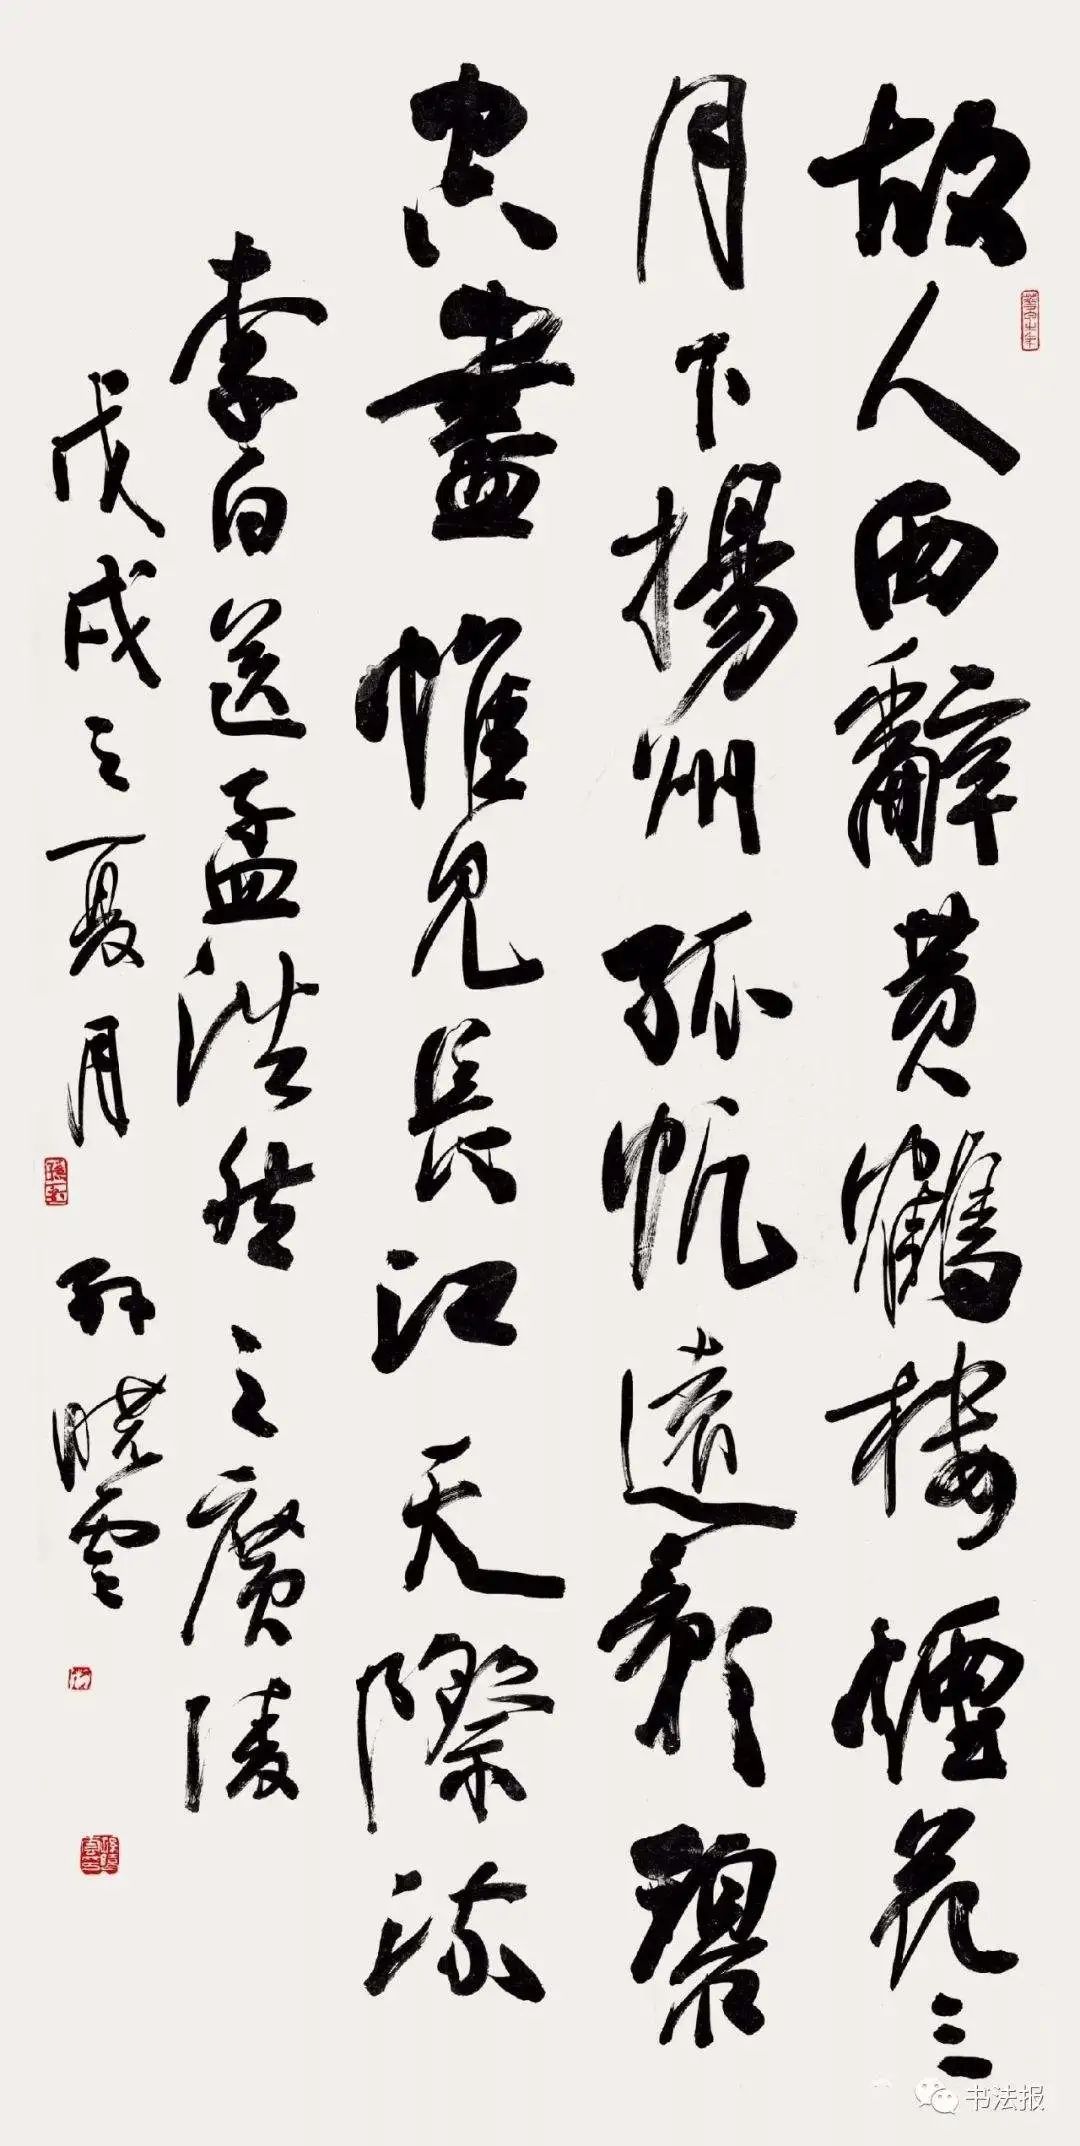 故人西辭黄鶴樓煙花三
月下揚州孤帆遠影碧
空盡惟見長江天際流
李白送孟浩然之廣陵
戊戌之夏月孫曉雲
书法报